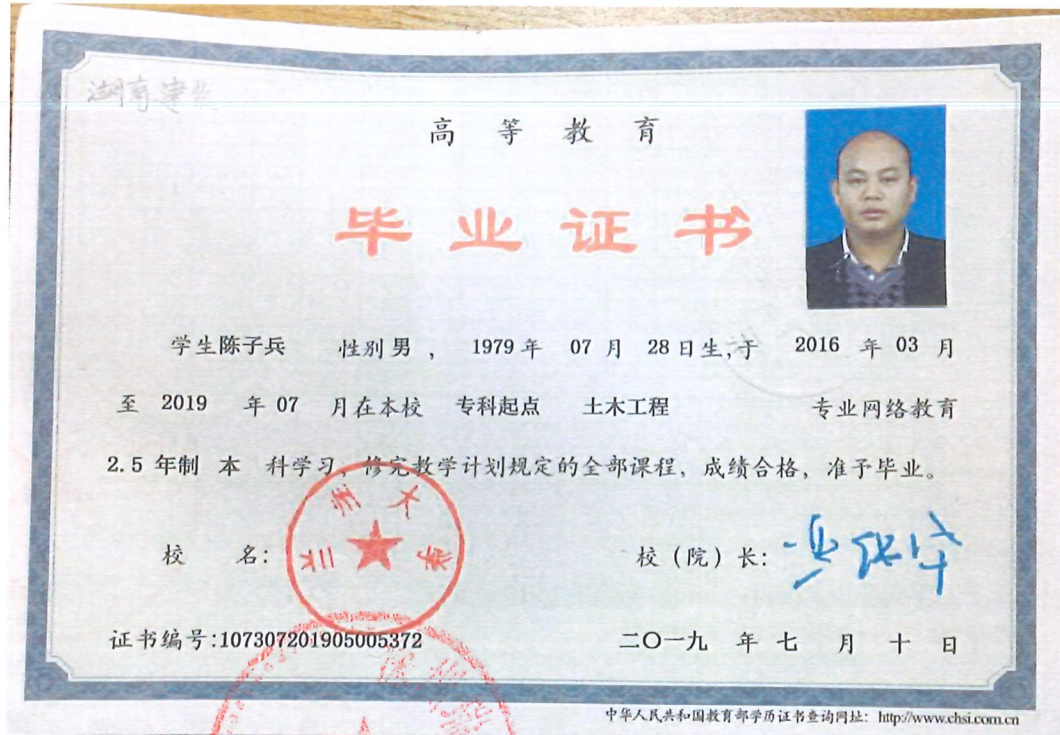 湖南建
高等教育
毕业证书
学生陈子兵 性别男，1979年07月28日生,于2016年03月
至2019年07月在本校 专科起点 土木工程 专业网络教育
2.5年制 本 科学习，修完教学计划规定的全部课程，成绩合格，准予毕业。
兰州大学
校 名： 校（院）长：
证书编号:107307201905005372 二〇一九年七月十日
中华人民共和国教育部学历证书查询网址：http://www.chsi.com.cn